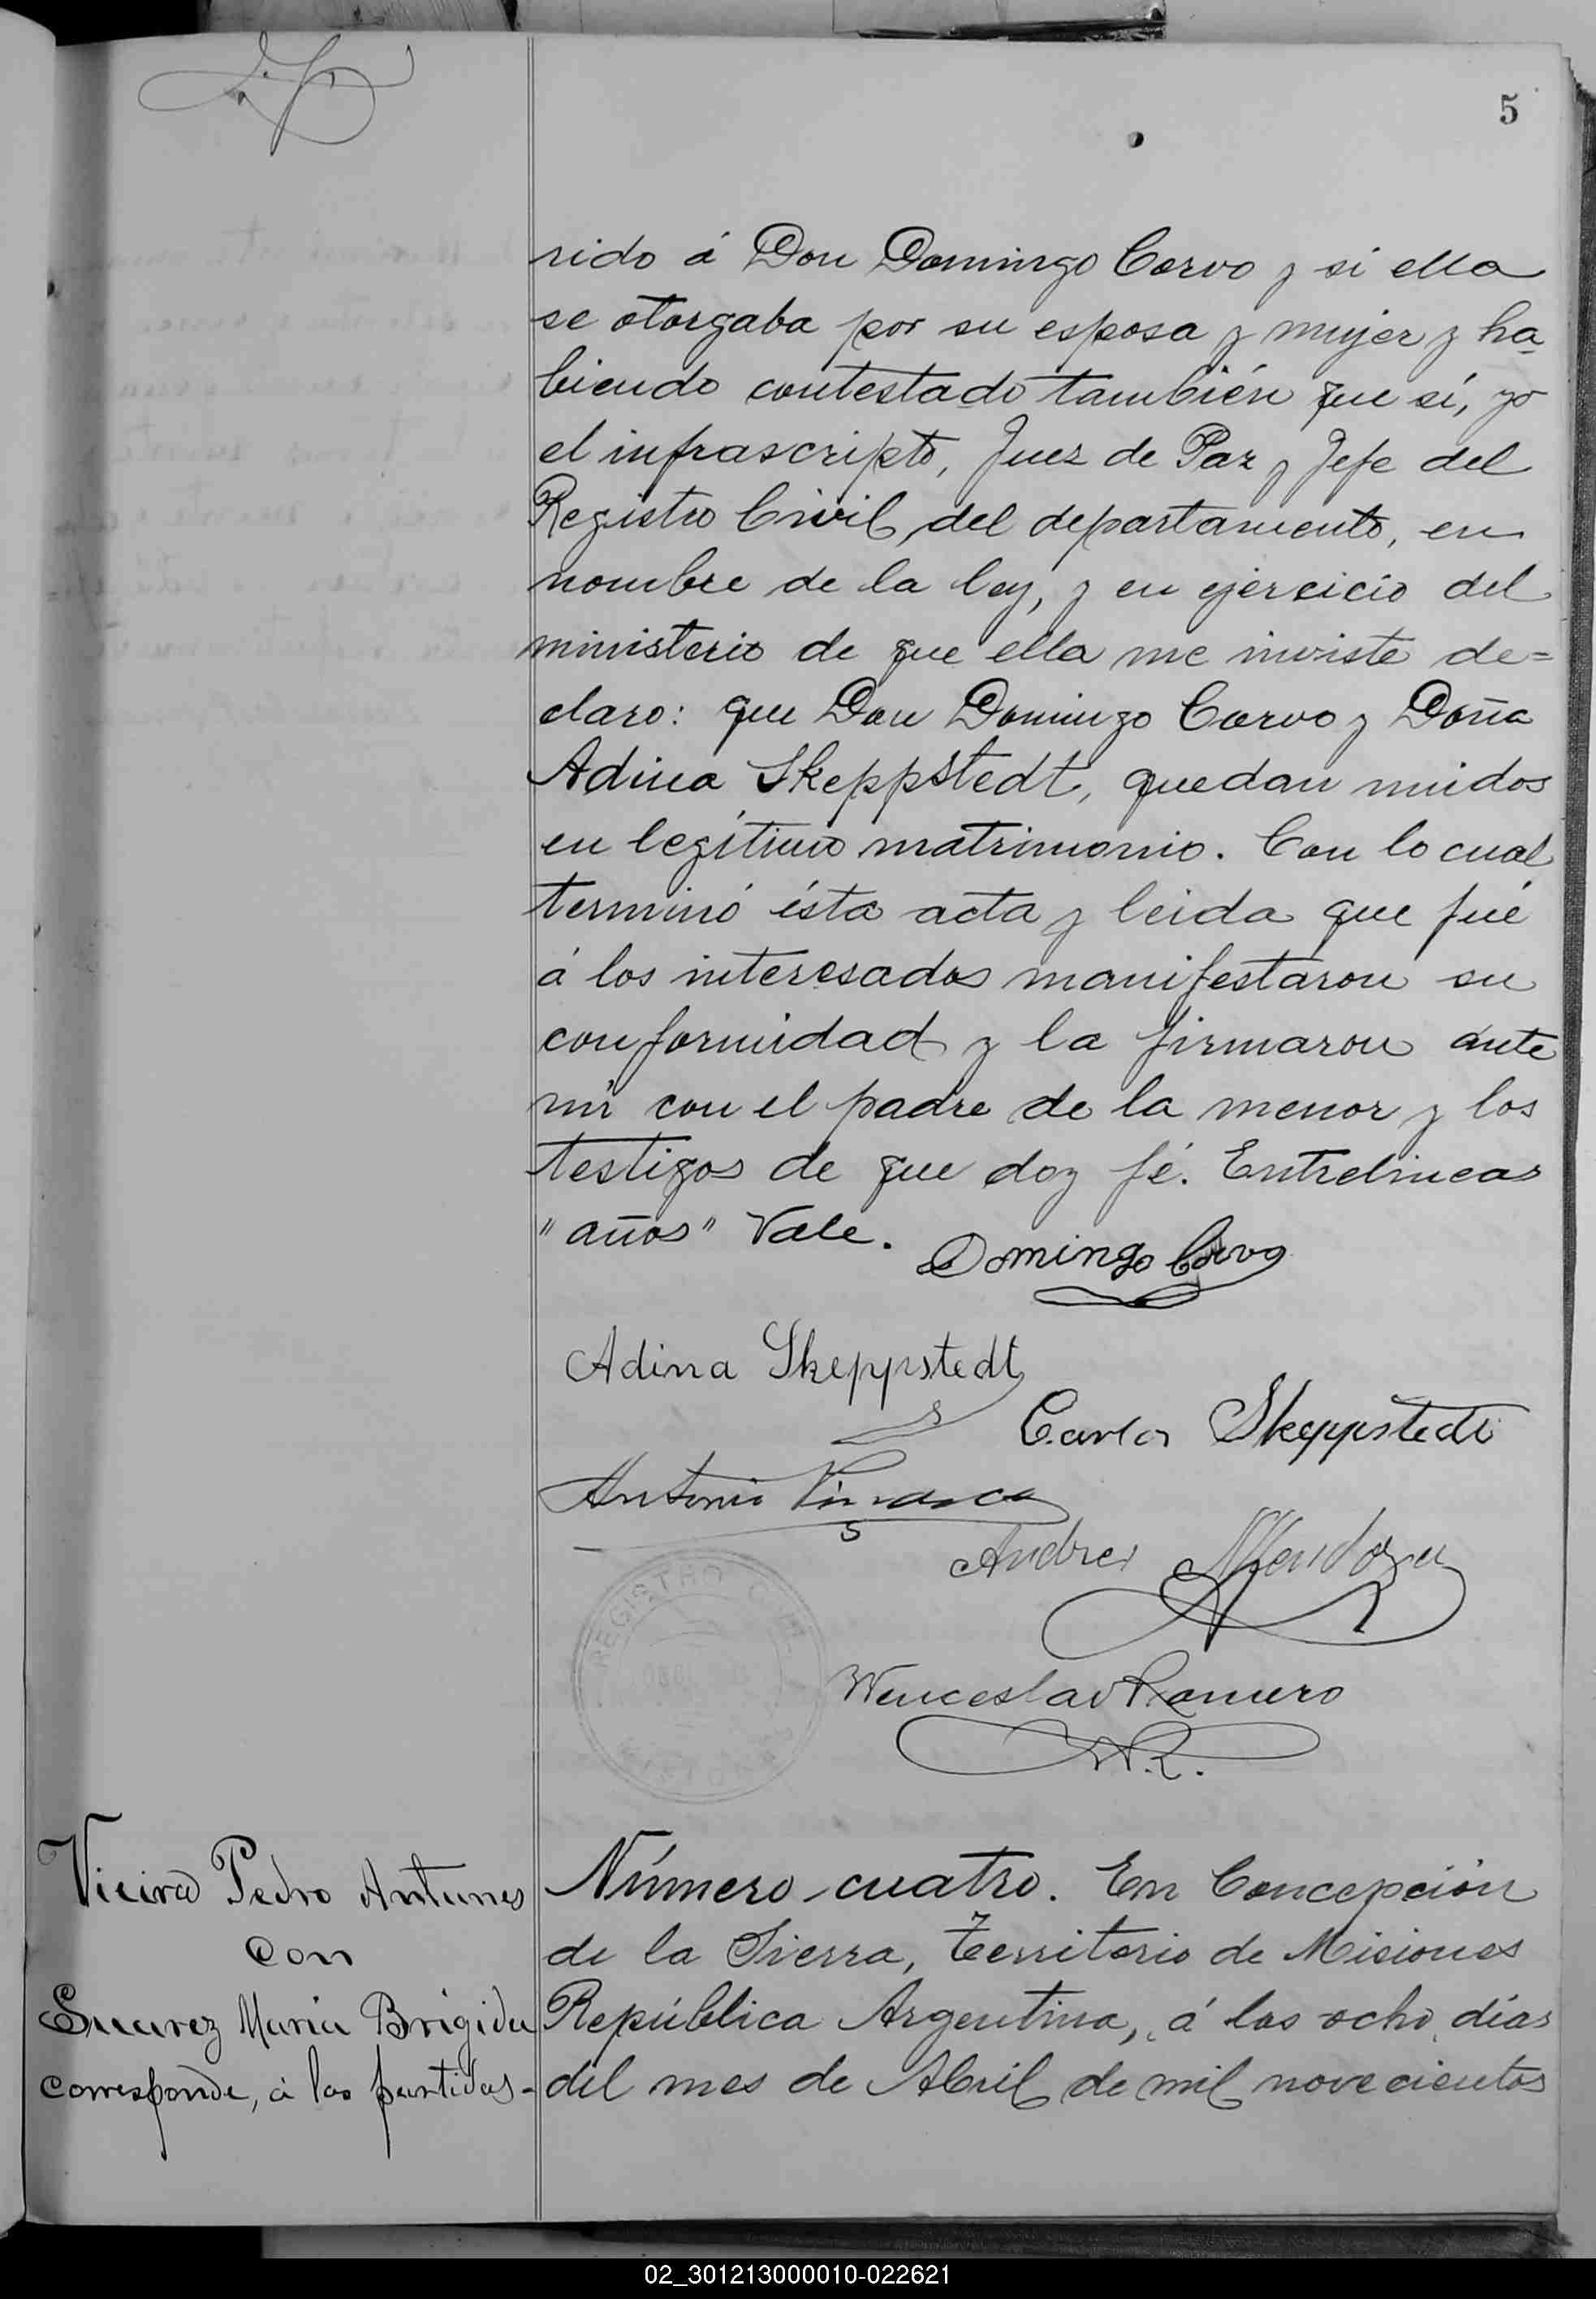 5
rido á Don Domingo Corvo y si ella
se otorgaba por su esposa y mujer y ha
biendo contestado también que sí, yo
el infrascripto, Juez de Paz y Jefe del
Registro Civil, del departamento, en
nombre de la ley, y en ejercicio del
ministerio de que ella me inviste de=
claro: que Don Domingo Corvo y Doña
Adina Skeppstedt, quedan unidos
en legítimo matrimonio. Con lo cual
terminó ésta acta y leida que fué
á los interesados manifestaron su
conformidad y la firmaron ante
mí con el padre de la menor y los
testigos de que doy fé. Entrelineas
"años" Vale. Domingo Corvo
Adina Skeppstedt
Carlos Skeppstedt
Antonio
Andres Mendoza
REGISTRO CIVIL
Wenceslao Romero
W.R.
Vieira Pedro Antunes
con
Suarez María Brígida
corresponde, á las partidas-
Número cuatro. En Concepción
de la Sierra, Territorio de Misiones
República Argentina, á los ocho días
del mes de Abril de mil novecientos
02_301213000010-022621